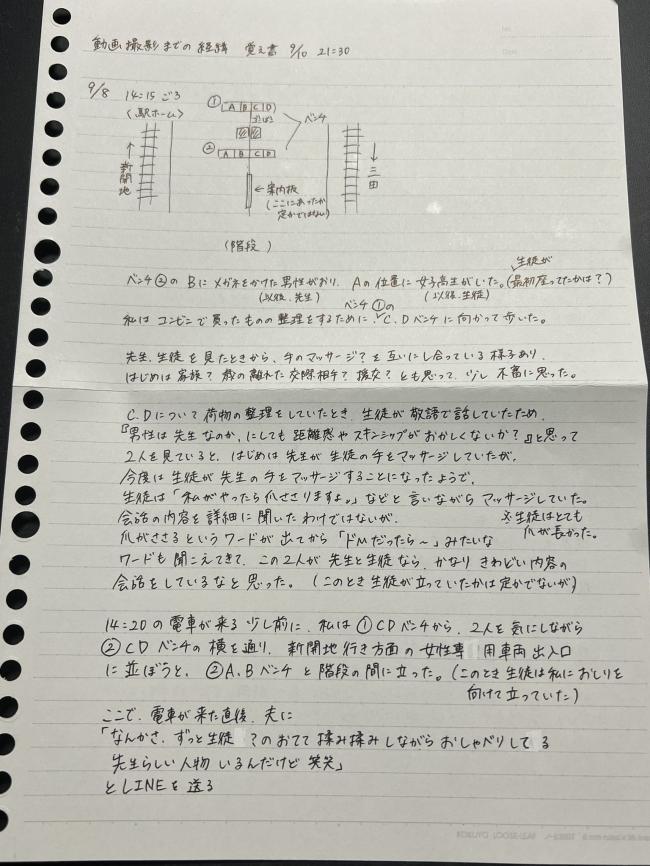 動画撮影までの経緯 覚え書 9/10 21:30
9/8 14:15 ごろ
〈駅ホーム〉
① A B C D
ベンチ
② A B C D
↑新開地
↓三田
←案内板
(ここにあったか定かではない)
(階段)
生徒が
ベンチ②の Bに メガネをかけた男性がおり、Aの位置に女子高生がいた。(最初座ってたかは?)
(以後、先生) ベンチ①の (以後、生徒)
私は コンビニで買ったものの整理をするために、C.Dベンチに向かって歩いた。
先生、生徒を見たときから、手のマッサージ?を互いにし合っている様子あり。
はじめは家族?歳の離れた交際相手?援交?とも思って、少し不審に思った。
C.Dについて荷物の整理をしていたとき、生徒が敬語で話していたため、
『男性は先生なのか、にしても距離感やスキンシップがおかしくないか?』と思って
2人を見ていると、はじめは先生が生徒の手をマッサージしていたが、
今度は生徒が先生の手をマッサージすることになったようで、
生徒は「私がやったら爪ささりますよ。」などと言いながらマッサージしていた。
会話の内容を詳細に聞いたわけではないが、
※生徒はとても爪が長かった。
爪がささるというワードが出てから「ドMだったら〜」みたいな
ワードも聞こえてきて、この2人が先生と生徒なら、かなりきわどい内容の
会話をしているなと思った。(このとき生徒が立っていたかは定かでないが)
14:20の電車が来る少し前に、私は①CDベンチから、2人を気にしながら
②CDベンチの横を通り、新開地行き方面の女性専用車両出入口
に並ぼうと、②A、Bベンチと階段の間に立った。(このとき生徒は私におしりを
向けて立っていた)
ここで、電車が来た直後、夫に
「なんかさ、ずっと生徒?のおてて揉み揉みしながらおしゃべりしてる
先生らしい人物いるんだけど笑笑」
とLINEを送る